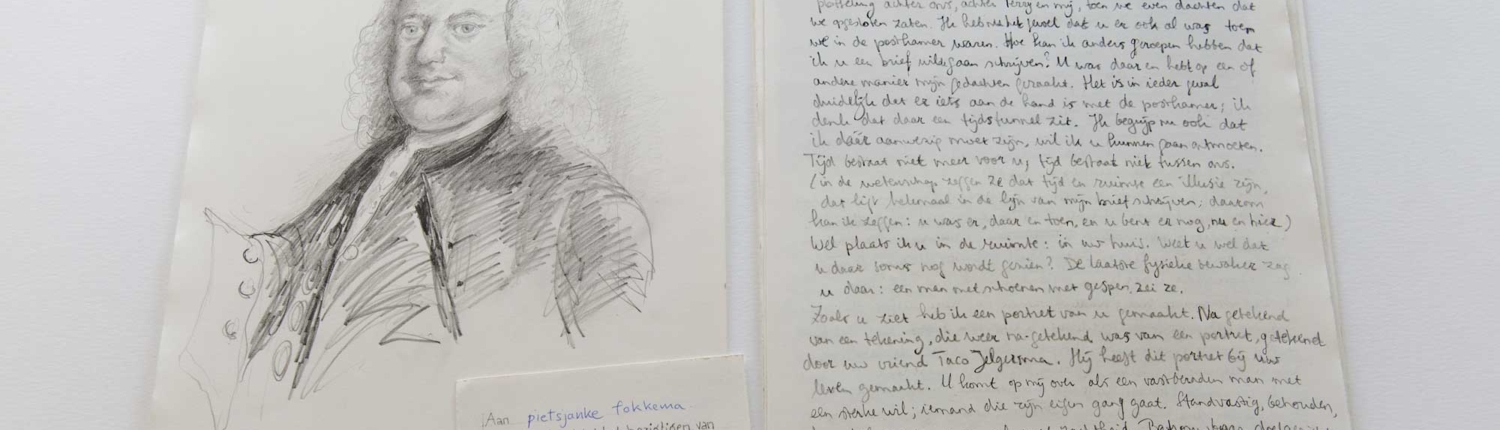 achter ons, achter Terry en mij, toen we even dachten dat
we opgesloten zaten. Ik heb nu het gevoel dat u er ook al was toen
we in de postkamer waren. Hoe kan ik anders geroepen hebben dat
ik u een brief wilde gaan schrijven? U was daar en hebt op een of
andere manier mijn gedachten geraakt. Het is in ieder geval
duidelijk dat er iets aan de hand is met de postkamer; ik
denk dat daar een tijdstunnel zit. Ik begrijp nu ook dat
ik dáár aanwezig moet zijn, wil ik u kunnen gaan ontmoeten.
Tijd bestaat niet meer voor u, tijd bestaat niet tussen ons.
(in de wetenschap zeggen ze dat tijd en ruimte een illusie zijn,
dat lijkt helemaal in de lijn van mijn brief schrijven; daarom
kan ik zeggen: u was er, daar en toen, en u bent er nog, nu en hier)
Wel plaats ik u in de ruimte: in uw huis. Weet u wel dat
u daar soms nog wordt gezien? De laatste fysieke bewoner zag
u daar: een man met schoenen met gespen, zei ze.
Zoals u ziet heb ik een portret van u gemaakt. Na getekend
van een tekening, die weer na-getekend was van een portret, getekend
door uw vriend Taco Jelgersma. Hij heeft dit portret bij uw
leven gemaakt. U komt op mij over als een vastberaden man met
een sterke wil; iemand die zijn eigen gang gaat. Standvastig, behouden,
Aan pietsjanke fokkema
van